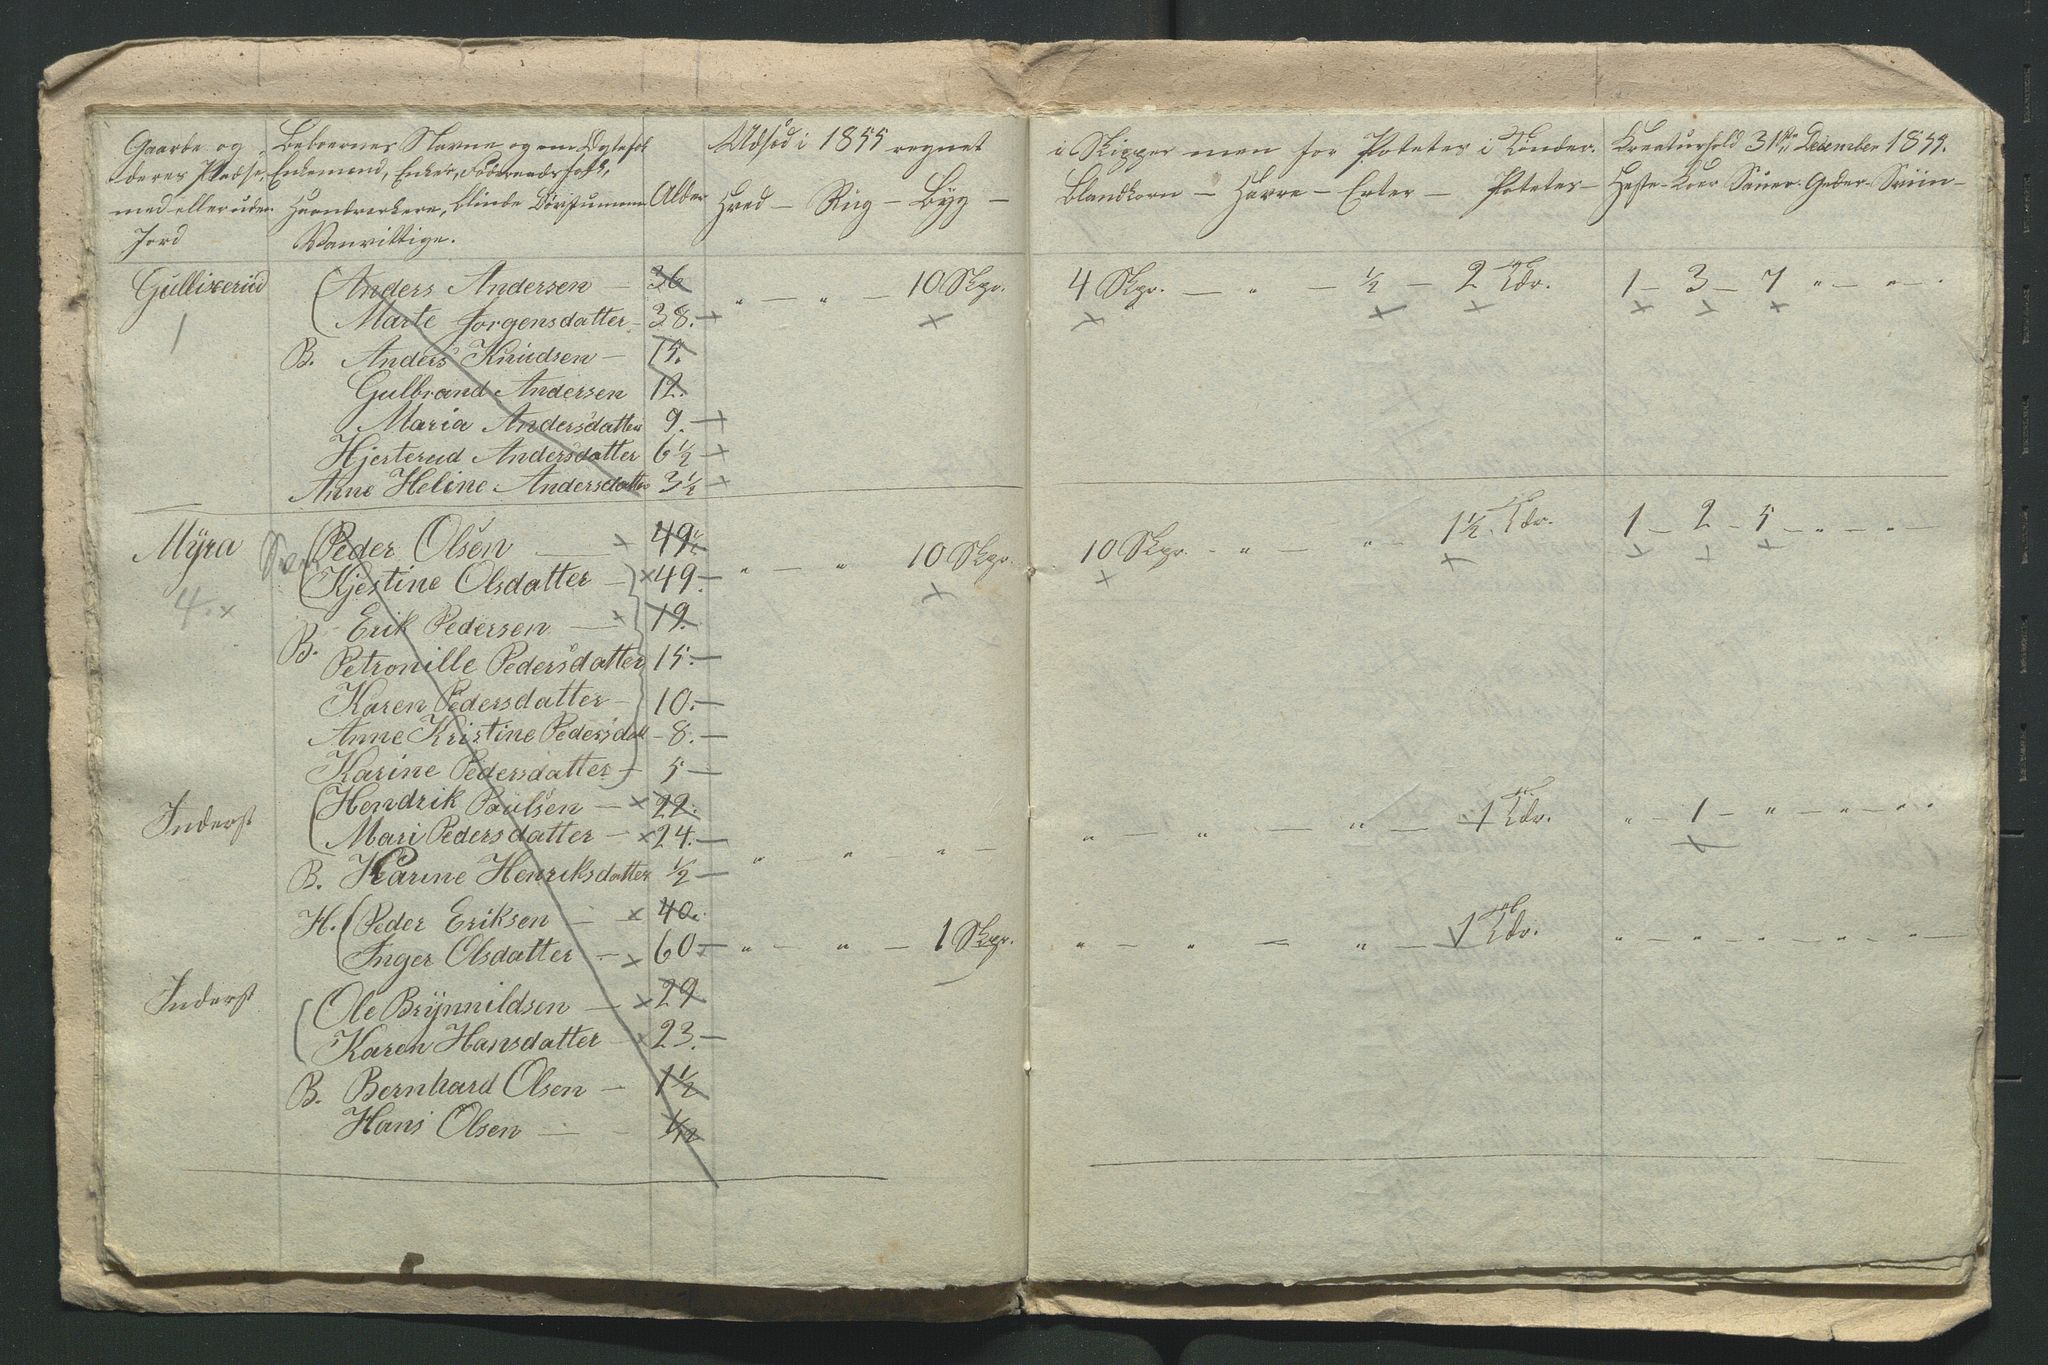 Gaarde og Beboernes Navne og om Ægtefolk Udsæd i 1855 regnet i Skipper men for Poteter i Tønder. Kreaturhold 31te December 1855.
deres Pladse, Enkemænd, Enker, Føderaadsfolk,
med eller uden Haandverkere, blinde Døvstumme Alder Hved — Rug — Byg — Blandkorn — Havre — Erter — Poteter — Heste — Køer Sauer. Geder — Sviin —
Jord Vanvittige.
Gullixerud Anders Andersen — 36 " — " — 10 Skpr. 4 Skpr. — " — ½ — 2 Tdr. 1 — 3 — 7 " — " — "
1 Marte Jorgensdatter — 38. +
B. Anders Knudsen — 15.
Gulbrand Andersen 12.
Maria Andersdatter 9. +
Hjerterud Andersdatter 6½ +
Anne Heline Andersdatter 3½ +
Myra Peder Olsen — + 49½ " — " 10 Skpr. 10 Skpr. — " — " — 1½ Tdr. 1 — 2 — 5 — " — " —
Kjestine Olsdatter — × 49 —
4. × Erik Pedersen — × 19.
B. Petronille Pedersdatter 15. —
Karen Pedersdatter — 10. —
Anne Kristine Pedersdatt — 8. —
Karine Pedersdatter — 5 —
Inderst Hendrik Paulsen — × 22. " — " — " — 1 Tdr. " — 1 — " — " — "
Mari Pedersdatter — × 24. — " " — " —
B. Karine Henriksdatter ½ —
H. Peder Eriksen — × 40. " — " — 1 Skpr. " — " — " — 1 Tdr. " — " — " — " — " —
Inger Olsdatter — × 60 —
Inderst Ole Brynnildsen — × 29
Karen Hansdatter — × 23. —
B. Bernhard Olsen — 1½
Hans Olsen — 1/12